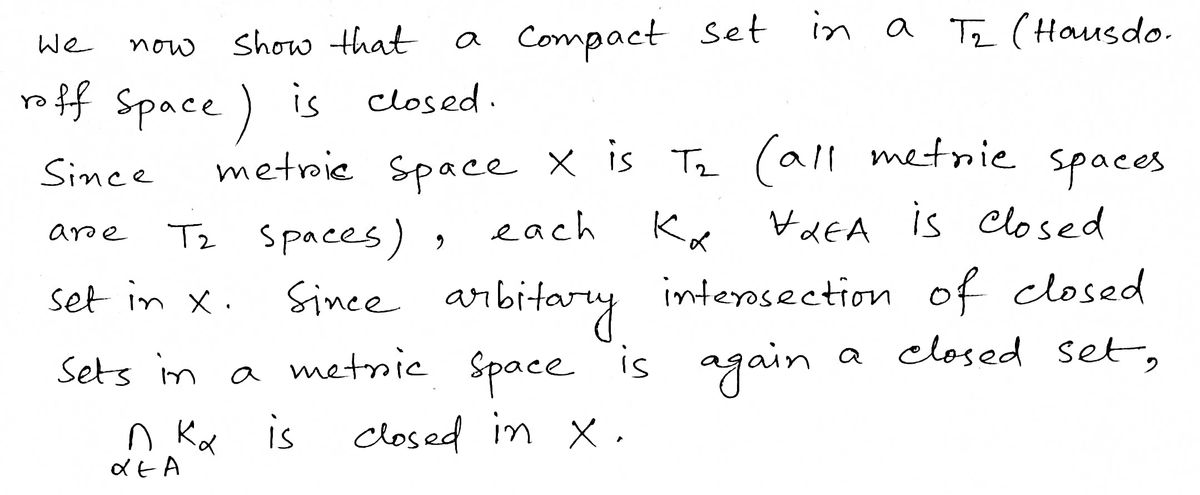 We now show that a compact set in a T₂ (Hausdo-
roff space) is closed.
Since metric space X is T₂ (all metric spaces
are T₂ spaces), each Kα ∀α∈A is closed
set in X. Since arbitary intersection of closed
sets in a metric space is again a closed set,
∩ Kα is closed in X.
α∈A